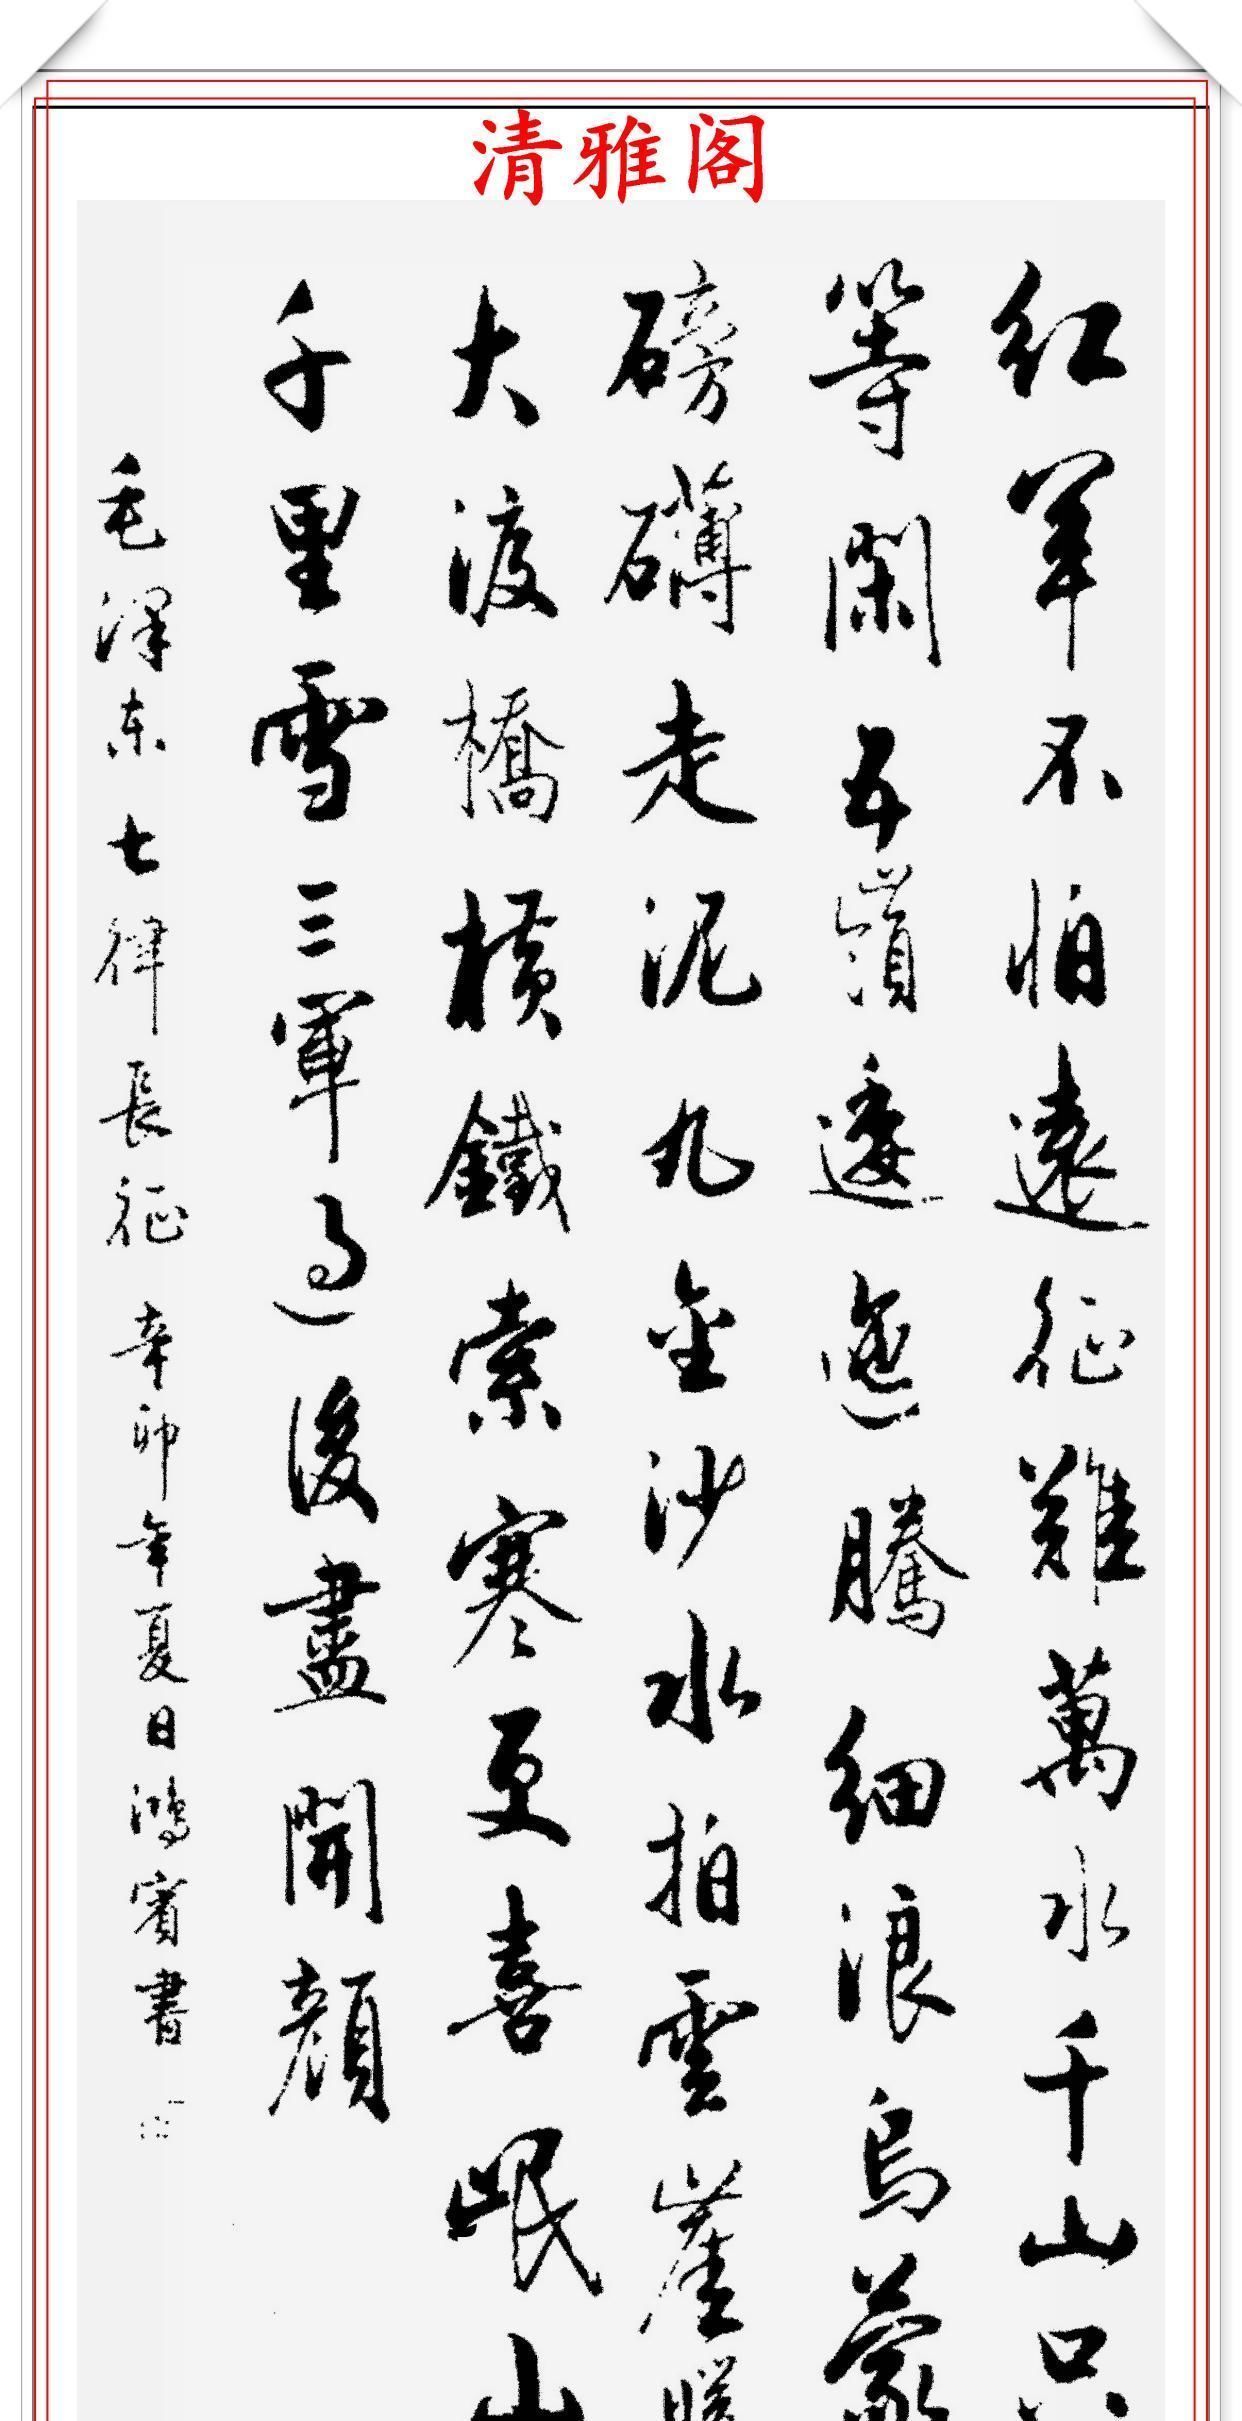 清雅阁
红军不怕遠征難萬水千山只
等閑五嶺逶迤騰細浪烏蒙
磅礴走泥丸金沙水拍雲崖暖
大渡橋横鐵索寒更喜岷山
千里雪三軍過後盡開顔
毛澤东七律長征辛卯年夏日鴻賓書